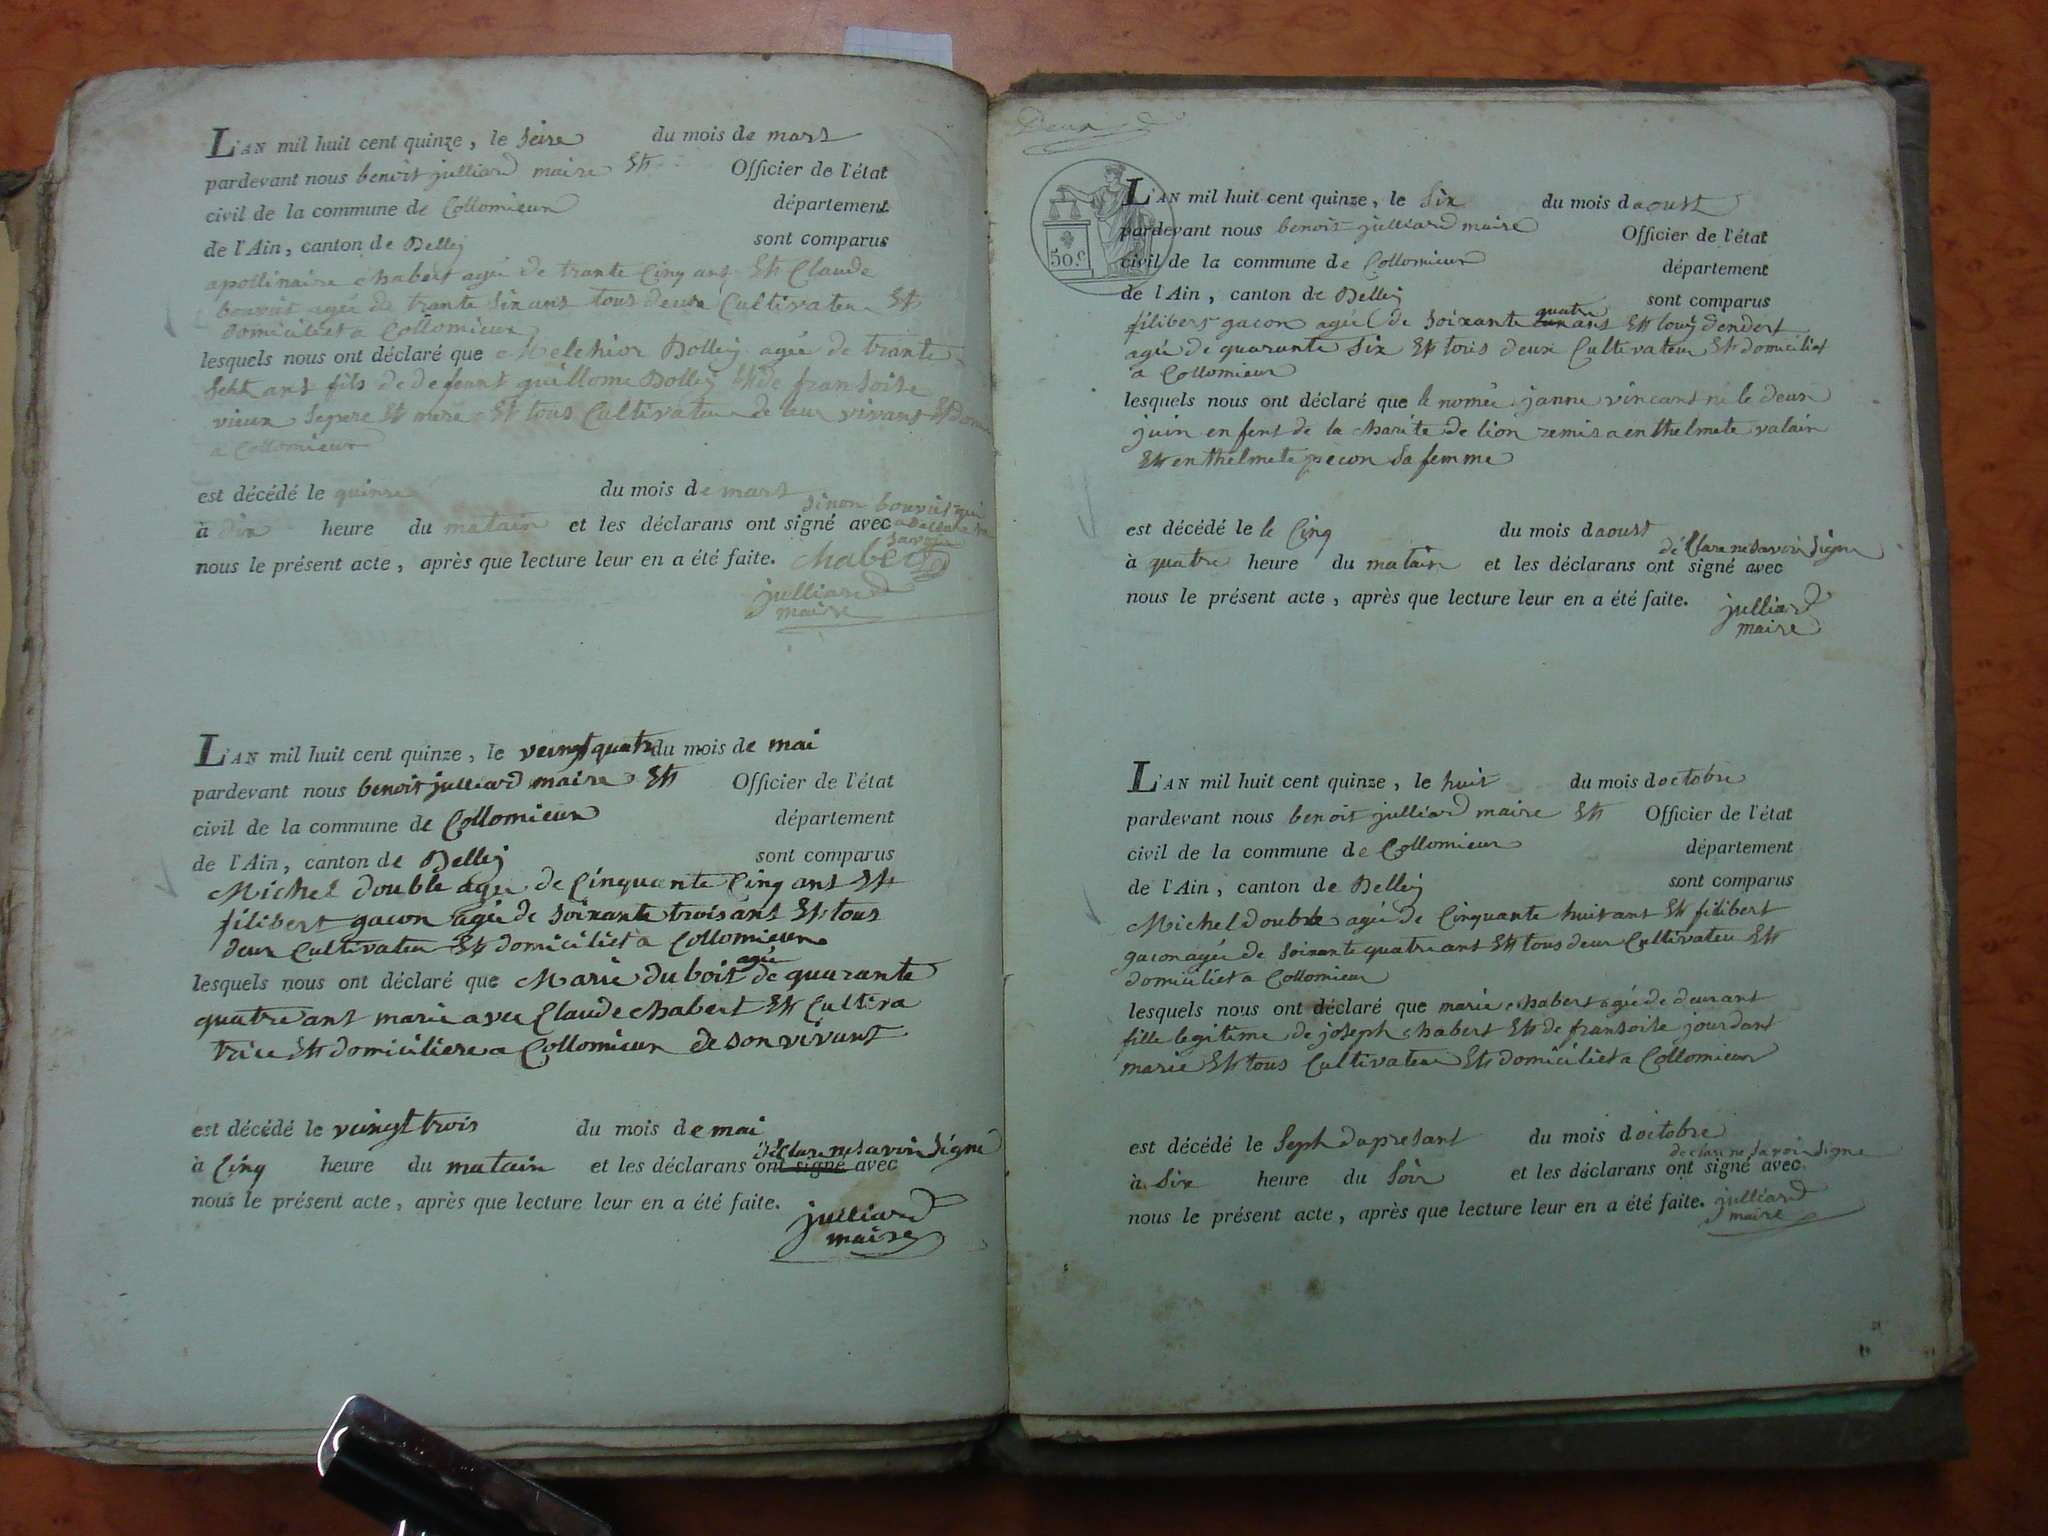 L'AN mil huit cent quinze, le seire du mois de mars
pardevant nous benoit julliard maire Et Officier de l'état
civil de la commune de Collomieux département
de l'Ain, canton de Belley sont comparus
apollinaire chabert agée de trante Cinq ans Et Claude
bouvier agée de trante six ans tous deux Cultivateu Et
domiciliet a Collomieux
lesquels nous ont déclaré que Melchior Dolley agée de trante
ans fils de defeant guillome Dolley Et de fransoise
vieux pere Et mere Et tous Cultivateu de leur vivant Et
a Collomieux
est décédé le quinze du mois de mars
sinon bouvier qui
à dix heure du matain et les déclarans ont signé avec
savoir
nous le présent acte, après que lecture leur en a été faite. Chabert
julliard
maire
L'AN mil huit cent quinze, le veingt quatre du mois de mai
pardevant nous benoit julliard maire Et Officier de l'état
civil de la commune de Collomieux département
de l'Ain, canton de Belley sont comparus
Michel double agée de Cinquante Cinq ans Et
filibert gacon agée de soixante trois ans Et tous
deux Cultivateu Et domiciliet a Collomieux
agée
lesquels nous ont déclaré que Marie du bois de quarante
quatre ans marie avec Claude chabert Et Cultiva
trice Et domiciliere a Collomieux de son vivant
est décédé le veingt trois du mois de mai
déClare ne savoir signe
à Cinq heure du matain et les déclarans ont signé avec
nous le présent acte, après que lecture leur en a été faite.
julliard
maire
Deux
50.c
L'AN mil huit cent quinze, le six du mois daoust
pardevant nous benoit julliard maire Officier de l'état
civil de la commune de Collomieux département
de l'Ain, canton de Belley sont comparus
quatre
filibert gacon agée de soixante ans Et louy dendert
agée de quarante six Et tous deux Cultivateu Et domiciliet
a Collomieux
lesquels nous ont déclaré que le nomée janne vincant né le deux
juin enfent de la charite de lion remis a enthelmete valain
Et enthelmete pecon sa femme
est décédé le le Cinq du mois daoust
déClare ne savoir signe
à quatre heure du matain et les déclarans ont signé avec
nous le présent acte, après que lecture leur en a été faite.
julliard
maire
L'AN mil huit cent quinze, le huit du mois doctobre
pardevant nous benoit julliard maire Et Officier de l'état
civil de la commune de Collomieux département
de l'Ain, canton de Belley sont comparus
Michel double agée de Cinquante huit ans Et filibert
gacon agée de soixante quatre ans Et tous deux Cultivateu Et
domiciliet a Collomieux
lesquels nous ont déclaré que marie chabert agée de deux ans
fille legitime de joseph chabert Et de fransoise jourdant
marie Et tous Cultivateu Et domiciliet a Collomieux
est décédé le Seph du presant du mois doctobre
declare ne savoir signe
à Six heure du Soir et les déclarans ont signé avec
nous le présent acte, après que lecture leur en a été faite. julliard
maire